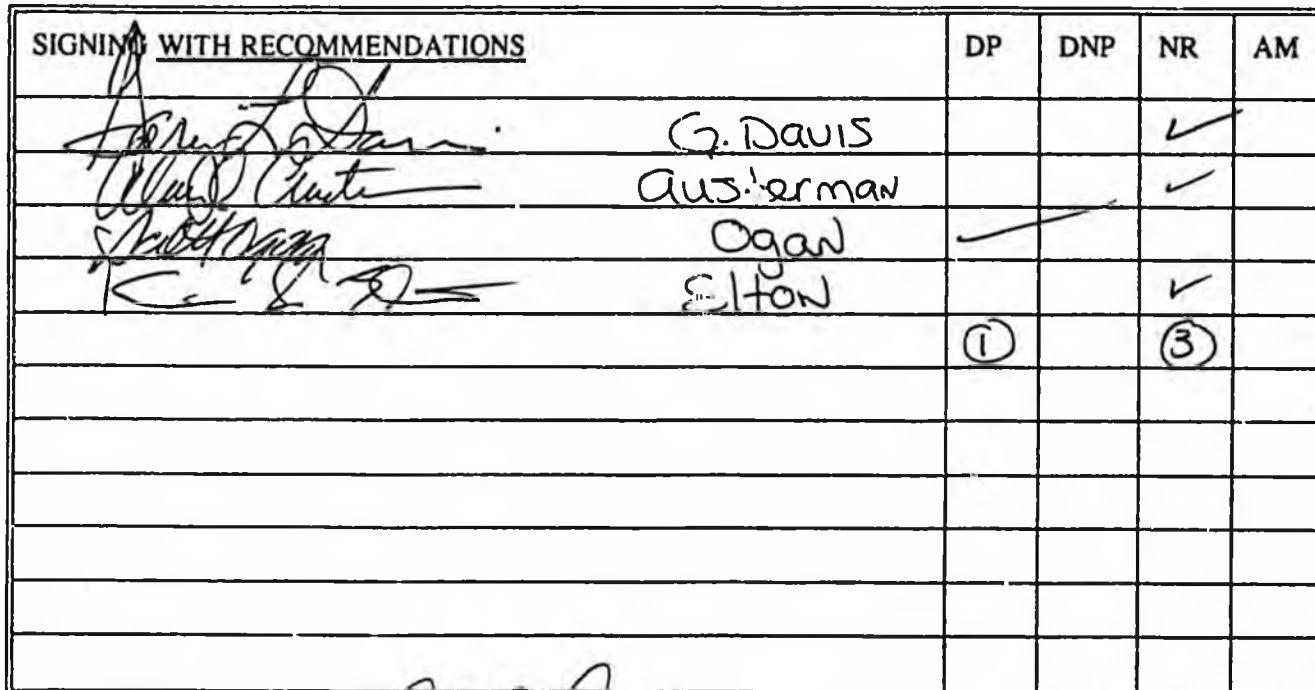 SIGNING WITH RECOMMENDATIONS DP DNP NR AM
G. Davis ✓
Austerman ✓
Ogan ✓
Elton ✓
1 3